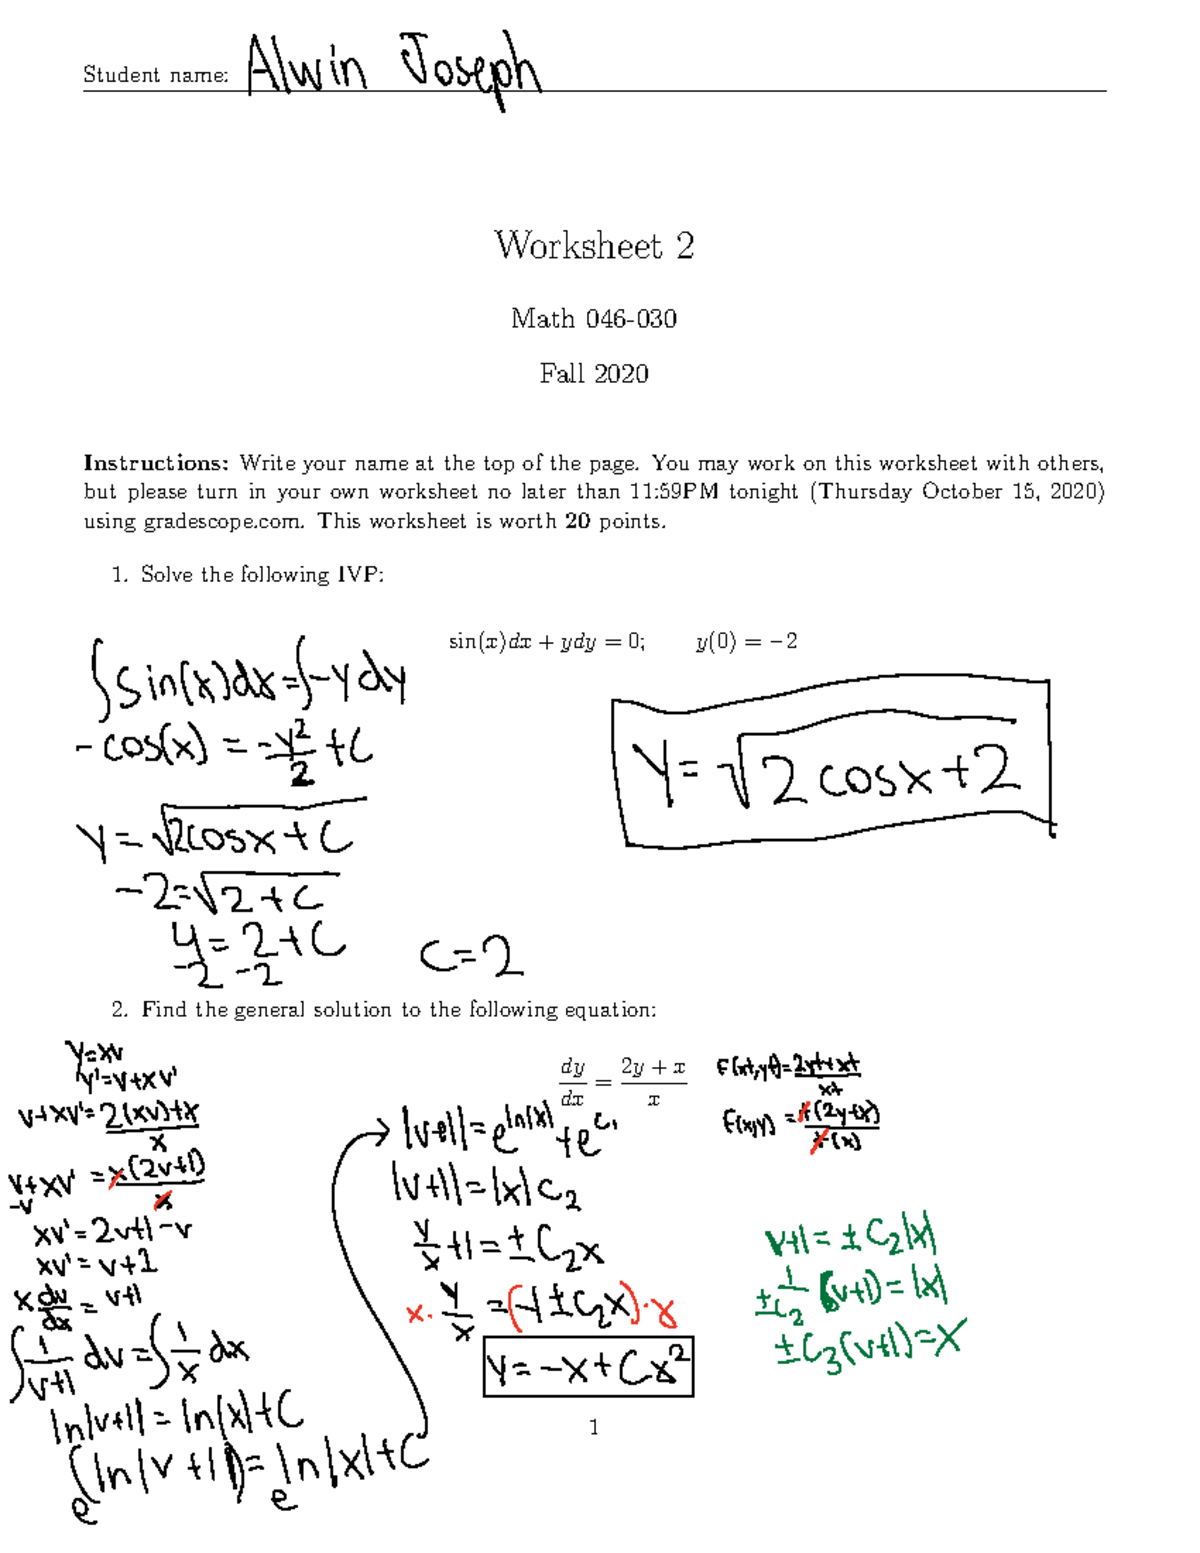 Student name: Alwin Joseph
Worksheet 2
Math 046-030
Fall 2020
Instructions: Write your name at the top of the page. You may work on this worksheet with others,
but please turn in your own worksheet no later than 11:59PM tonight (Thursday October 15, 2020)
using gradescope.com. This worksheet is worth 20 points.
1. Solve the following IVP:
sin(x)dx + ydy = 0; y(0) = −2
∫sin(x)dx = ∫-y dy
-cos(x) = -y²/2 + C
y = √2cosx + C
-2 = √2 + C
4 = 2 + C
-2 -2
C = 2
y = √2 cosx + 2
2. Find the general solution to the following equation:
dy/dx = (2y + x)/x
y=xv
y'=v+xv'
v+xv' = 2(xv)+x / x
v+xv' = x(2v+1) / x
-v
xv' = 2v+1-v
xv' = v+1
x dv/dx = v+1
∫ 1/v+1 dv = ∫ 1/x dx
ln|v+1| = ln|x|+C
e^(ln|v+1|) = e^ln|x|+C
|v+1| = e^ln|x| + e^C₁
|v+1| = |x| C₂
y/x +1 = ± C₂x
x· y/x = (-1 ± C₂x)·x
y = -x + Cx²
F(xt,yt) = 2yt+xt / xt
F(x,y) = t(2y+x) / t(x)
v+1 = ± C₂|x|
± 1/C₂ (v+1) = |x|
± C₃(v+1) = x
1